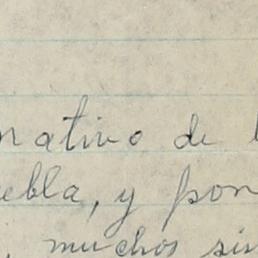 nativo de l
ebla, y pon
, muchos sin